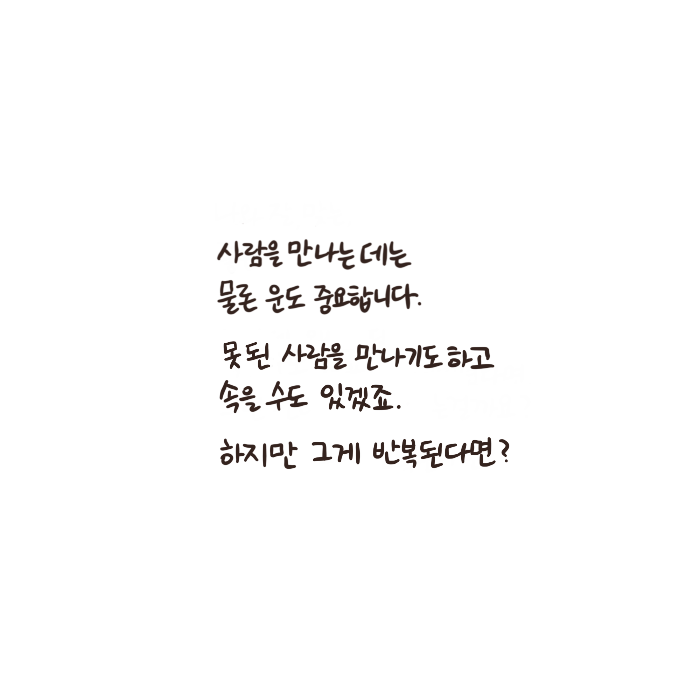 사람을 만나는 데는
물론 운도 중요합니다.
못된 사람을 만나기도 하고
속을 수도 있겠죠.
하지만 그게 반복된다면?